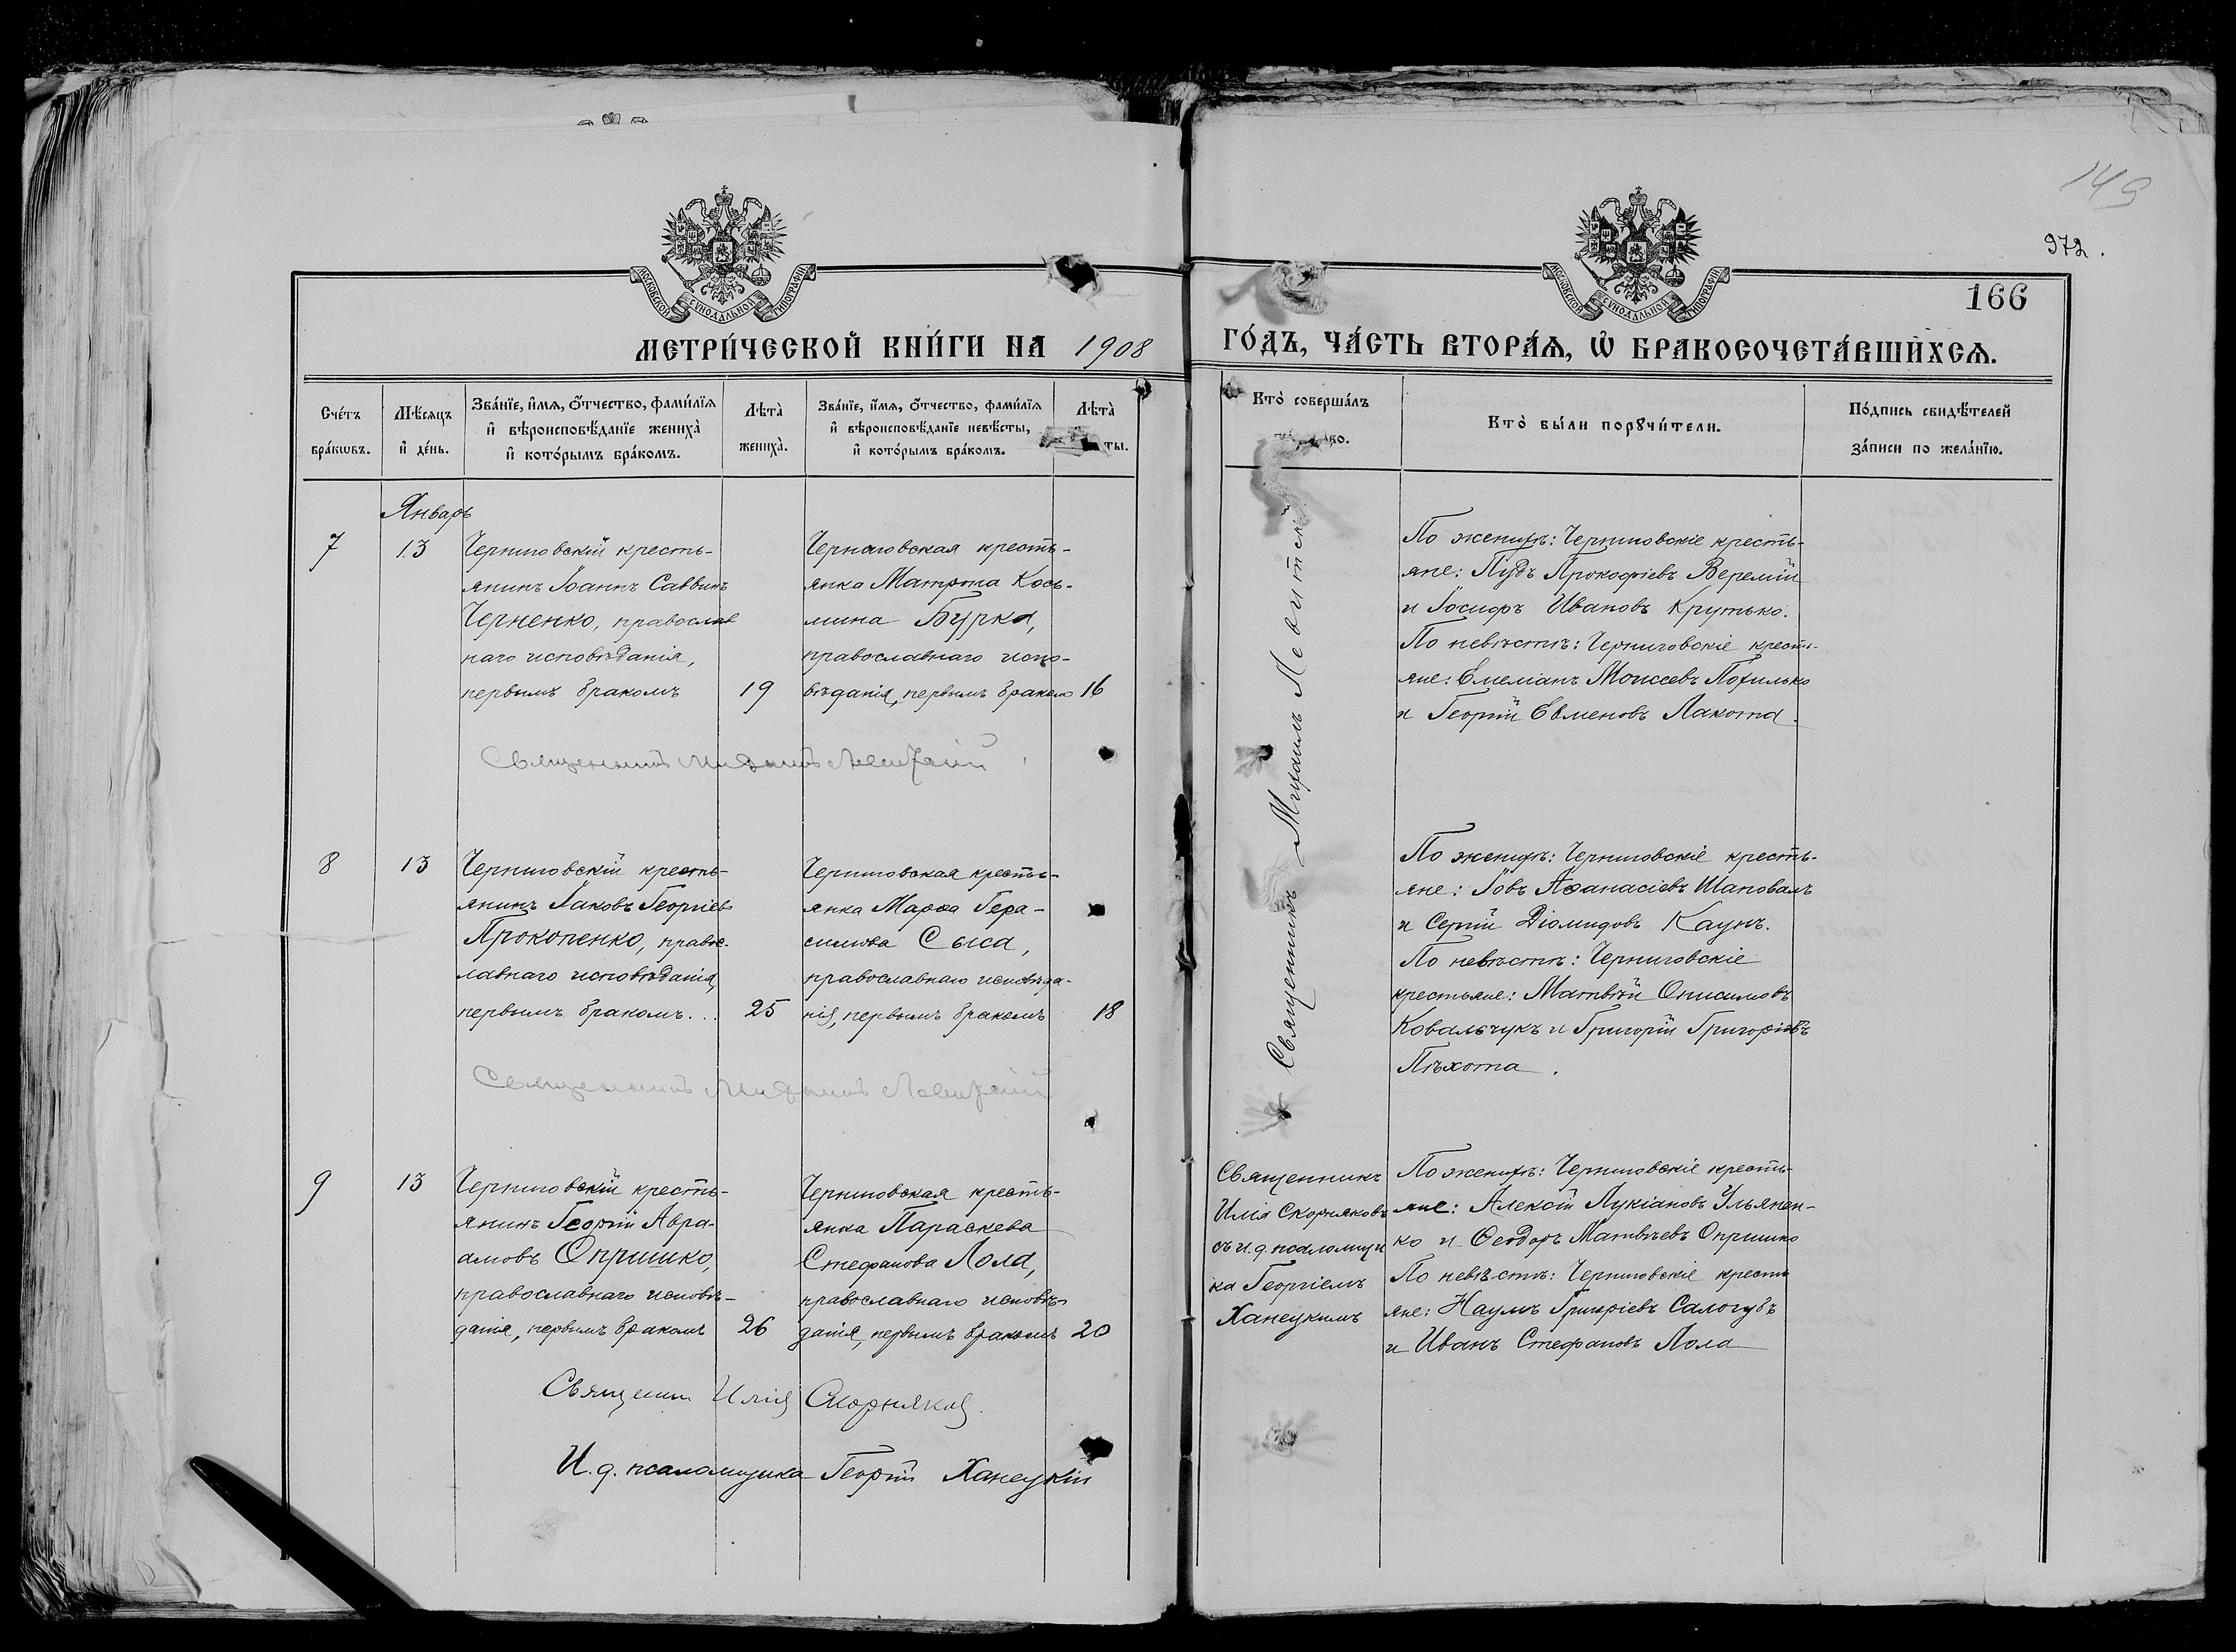 149
972.
166
МОСКОВСКОЙ СѴНОДАЛЬНОЙ ТИПОГРАФІИ
МОСКОВСКОЙ СѴНОДАЛЬНОЙ ТИПОГРАФІИ
МЕТРИ́ЧЕСКОЙ КНИ́ГИ НА 1908 ГО́ДЪ, ЧА́СТЬ ВТОРА́Ѧ, Ѡ҆ БРАКОСОЧЕТА́ВШИХСѦ.
Сче́тъ
бра́кѡвъ.
Мѣ́сяцъ
и҆ де́нь.
Зва́нїе, и҆́мѧ, ѻ҆́тчество, фами́лїѧ
и҆ вѣроисповѣ́данїе жениха̀
и҆ кото́рымъ бра́комъ.
Лѣта̀
жениха̀.
Зва́нїе, и҆́мѧ, ѻ҆́тчество, фами́лїѧ
и҆ вѣроисповѣ́данїе невѣ́сты,
и҆ кото́рымъ бра́комъ.
Лѣта̀
ты.
Кто̀ соверша́лъ
во.
Кто̀ бы́ли порꙋчи́тели.
По́дпись свидѣ́телей
за́писи по жела́нїю.
Январь
7
13
Черниговскій кресть-
янинъ Іоаннъ Саввинъ
Черненко, православ
наго исповѣданія,
первымъ бракомъ
19
Черниговская кресть-
янка Матрона Кось-
мина Бурка,
православнаго испо-
вѣданія, первымъ бракомъ
16
Священникъ Михаилъ Левитскій
По женихѣ: Черниговскіе кресть-
яне: Пудъ Прокофіевъ Веремій
и Іосифъ Ивановъ Крутько.
По невѣстѣ: Черниговскіе кресть-
яне: Емеліанъ Моисеевъ Похилько
и Георгій Евменовъ Лакота.
Священникъ Михаилъ Левитскій
8
13
Черниговскій кресть-
янинъ Іаковъ Георгіевъ
Прокопенко, правос-
лавнаго исповѣданія,
первымъ бракомъ...
25
Черниговская кресть-
янка Марѳа Гера-
симова Сыса,
православнаго исповѣда-
нія, первымъ бракомъ
18
По женихѣ: Черниговскіе кресть-
яне: Іовъ Аѳанасіевъ Шаповалъ
и Сергій Діомидовъ Каунъ.
По невѣстѣ: Черниговскіе
крестьяне: Матвѣй Онисимовъ
Ковальчукъ и Григорій Григоріевъ
Пѣхота.
Священникъ Михаилъ Левитскій
9
13
Черниговскій кресть-
янинъ Георгій Авра-
амовъ Опришко,
православнаго исповѣ-
данія, первымъ бракомъ
26
Черниговская кресть-
янка Параскева
Стефанова Лола,
православнаго исповѣ-
данія, первымъ бракомъ
20
Священникъ
Илія Скорняковъ
съ и. д. псаломщи
ка Георгіемъ
Ханецкимъ
По женихѣ: Черниговскіе кресть-
яне: Алексій Лукіановъ Ульянен-
ко и Ѳеодоръ Матвѣевъ Опришко
По невѣстѣ: Черниговскіе кресть
яне: Наумъ Григоріевъ Салогубъ
и Иванъ Стефановъ Лола
Священник Илія Скорняков
И. д. псаломщика Георгій Ханецкій